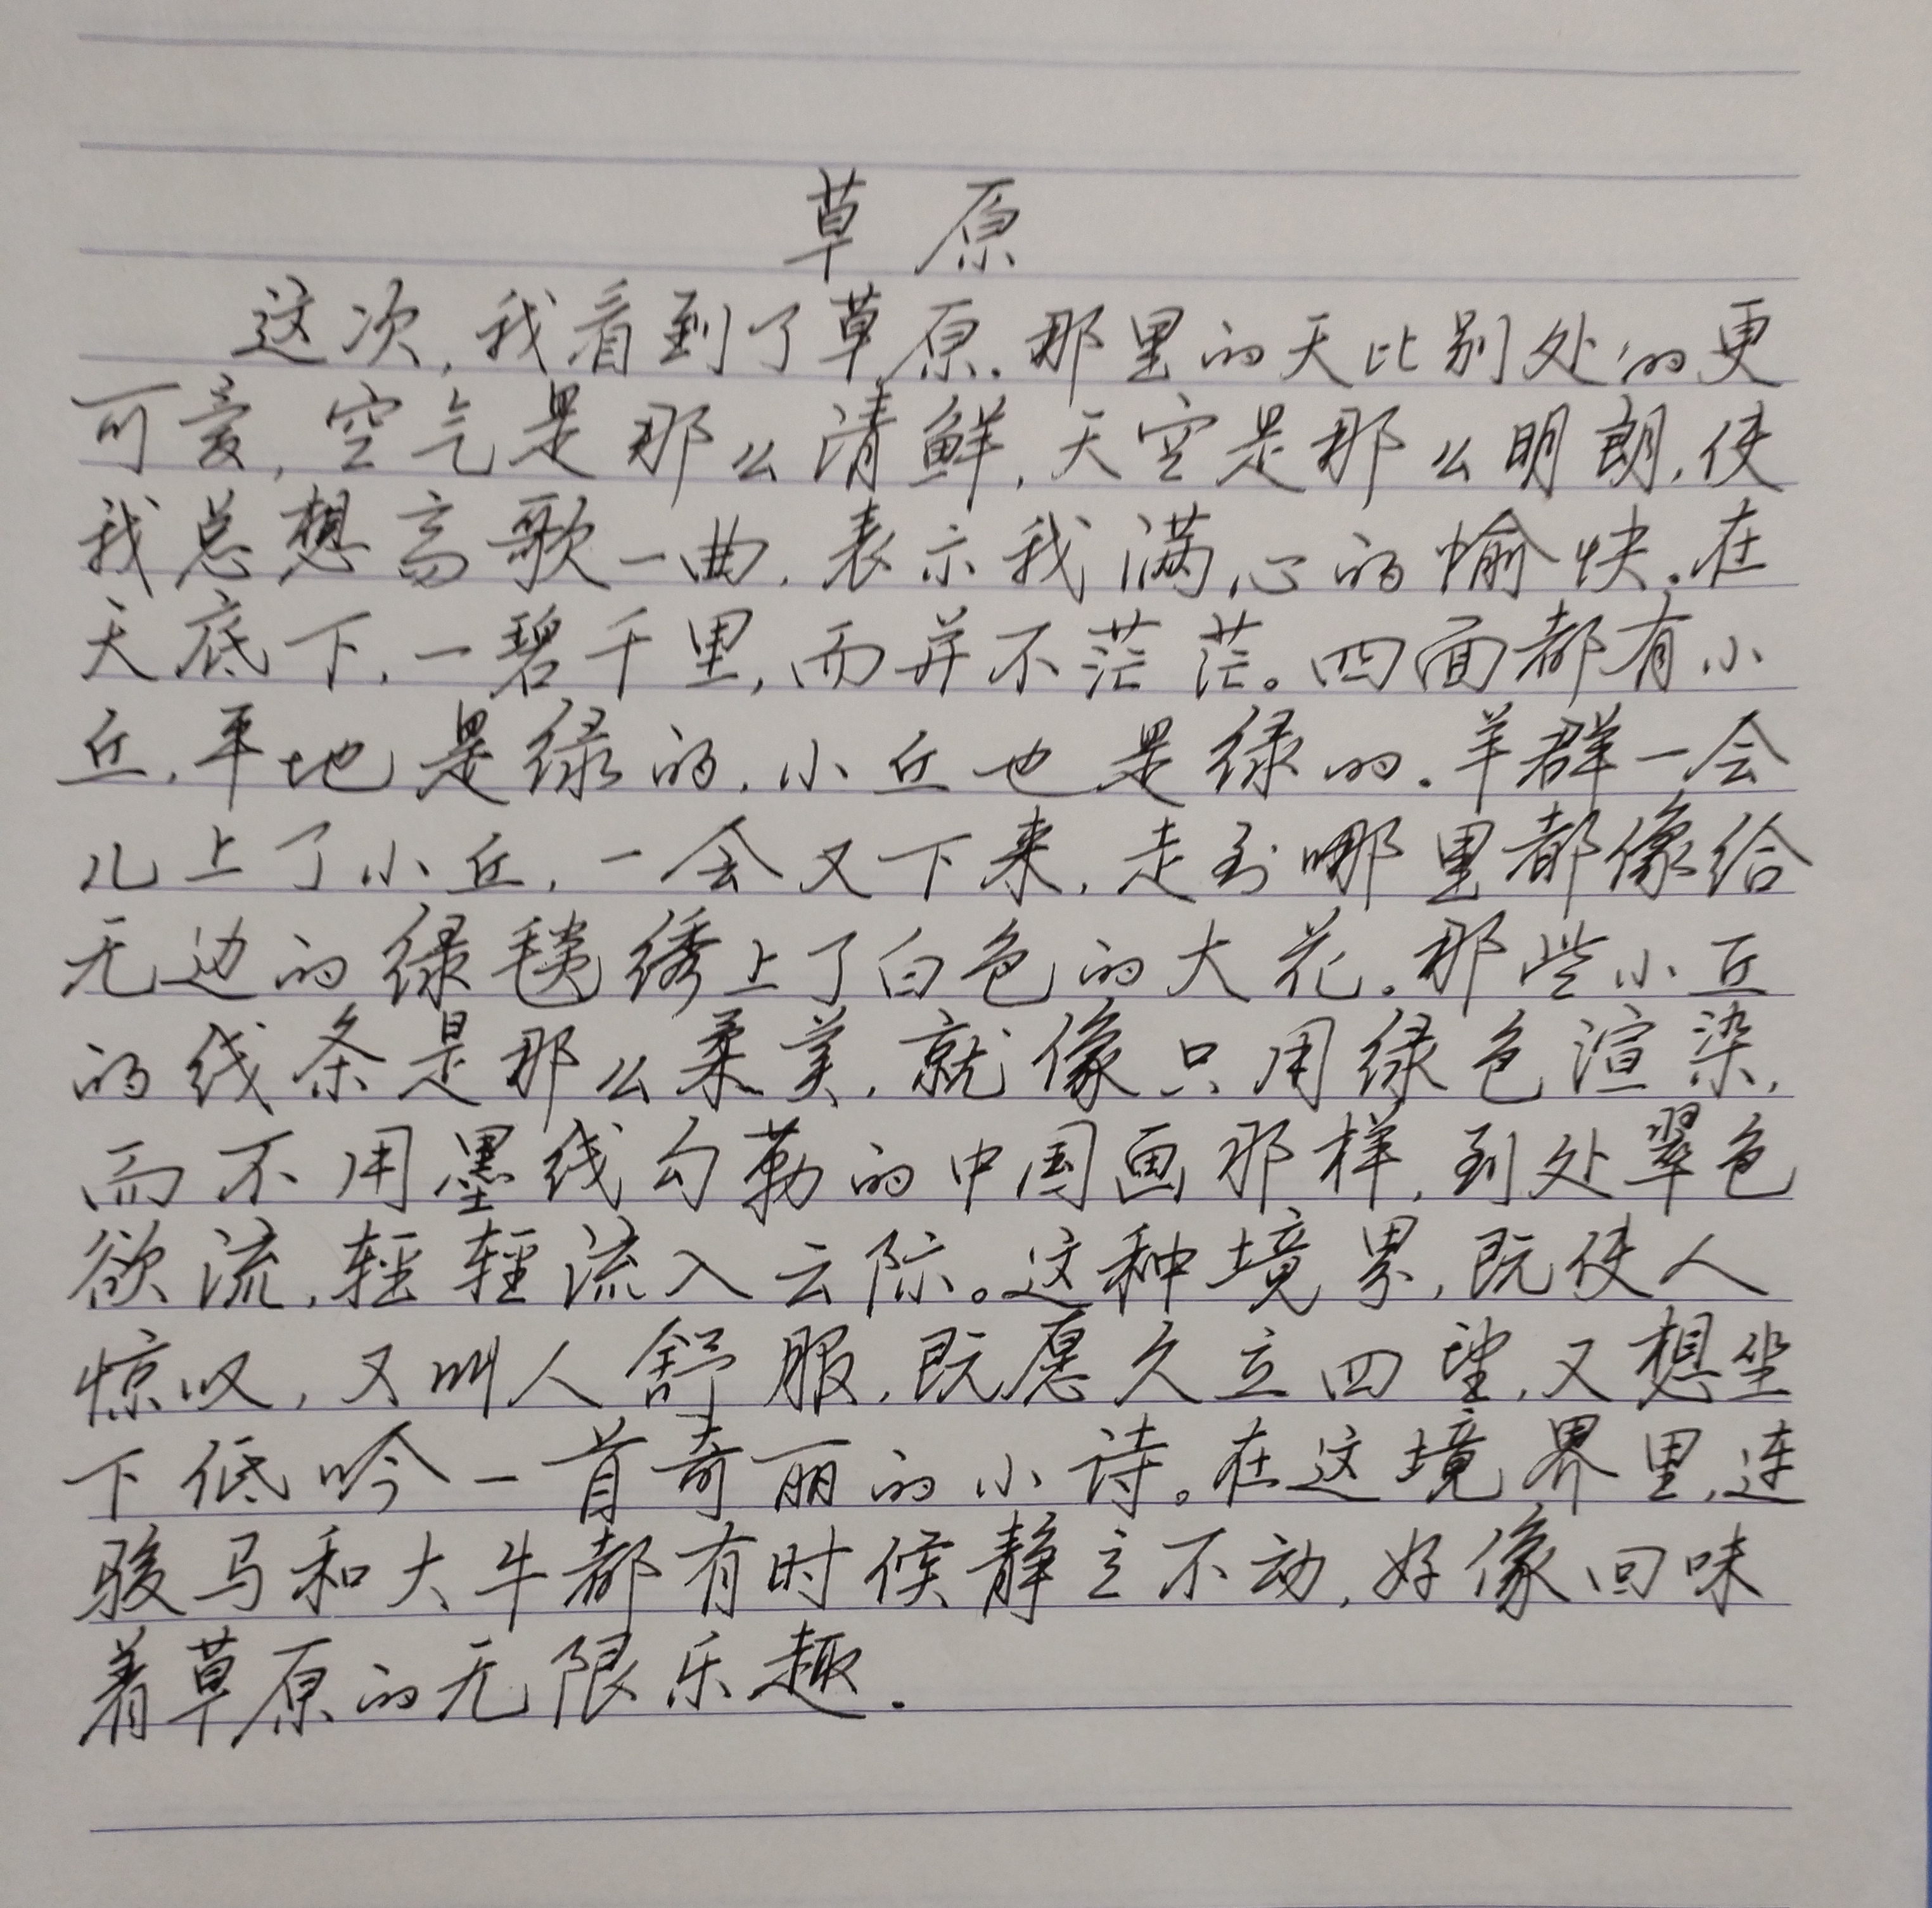 草原
这次,我看到了草原.那里的天比别处的更
可爱,空气是那么清鲜,天空是那么明朗,使
我总想高歌一曲,表示我满心的愉快.在
天底下,一碧千里,而并不茫茫。四面都有小
丘,平地是绿的,小丘也是绿的.羊群一会
儿上了小丘,一会又下来,走到哪里都像给
无边的绿毯绣上了白色的大花.那些小丘
的线条是那么柔美,就像只用绿色渲染,
而不用墨线勾勒的中国画那样,到处翠色
欲流,轻轻流入云际。这种境界,既使人
惊叹,又叫人舒服,既愿久立四望,又想坐
下低吟一首奇丽的小诗。在这境界里,连
骏马和大牛都有时候静立不动,好像回味
着草原的无限乐趣.